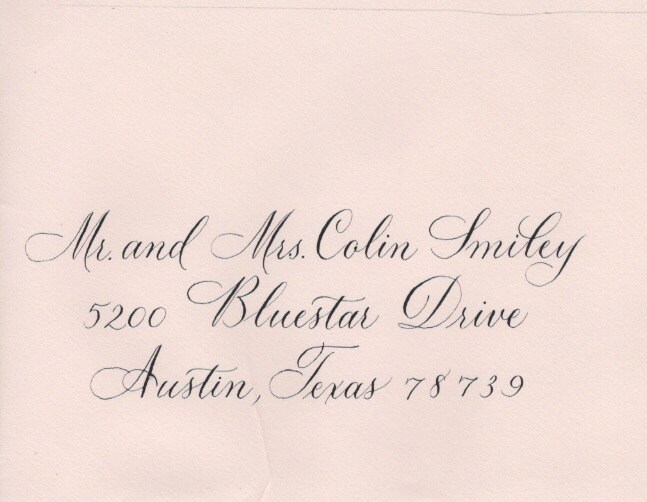 Mr. and Mrs. Colin Smiley
5200 Bluestar Drive
Austin, Texas 78739